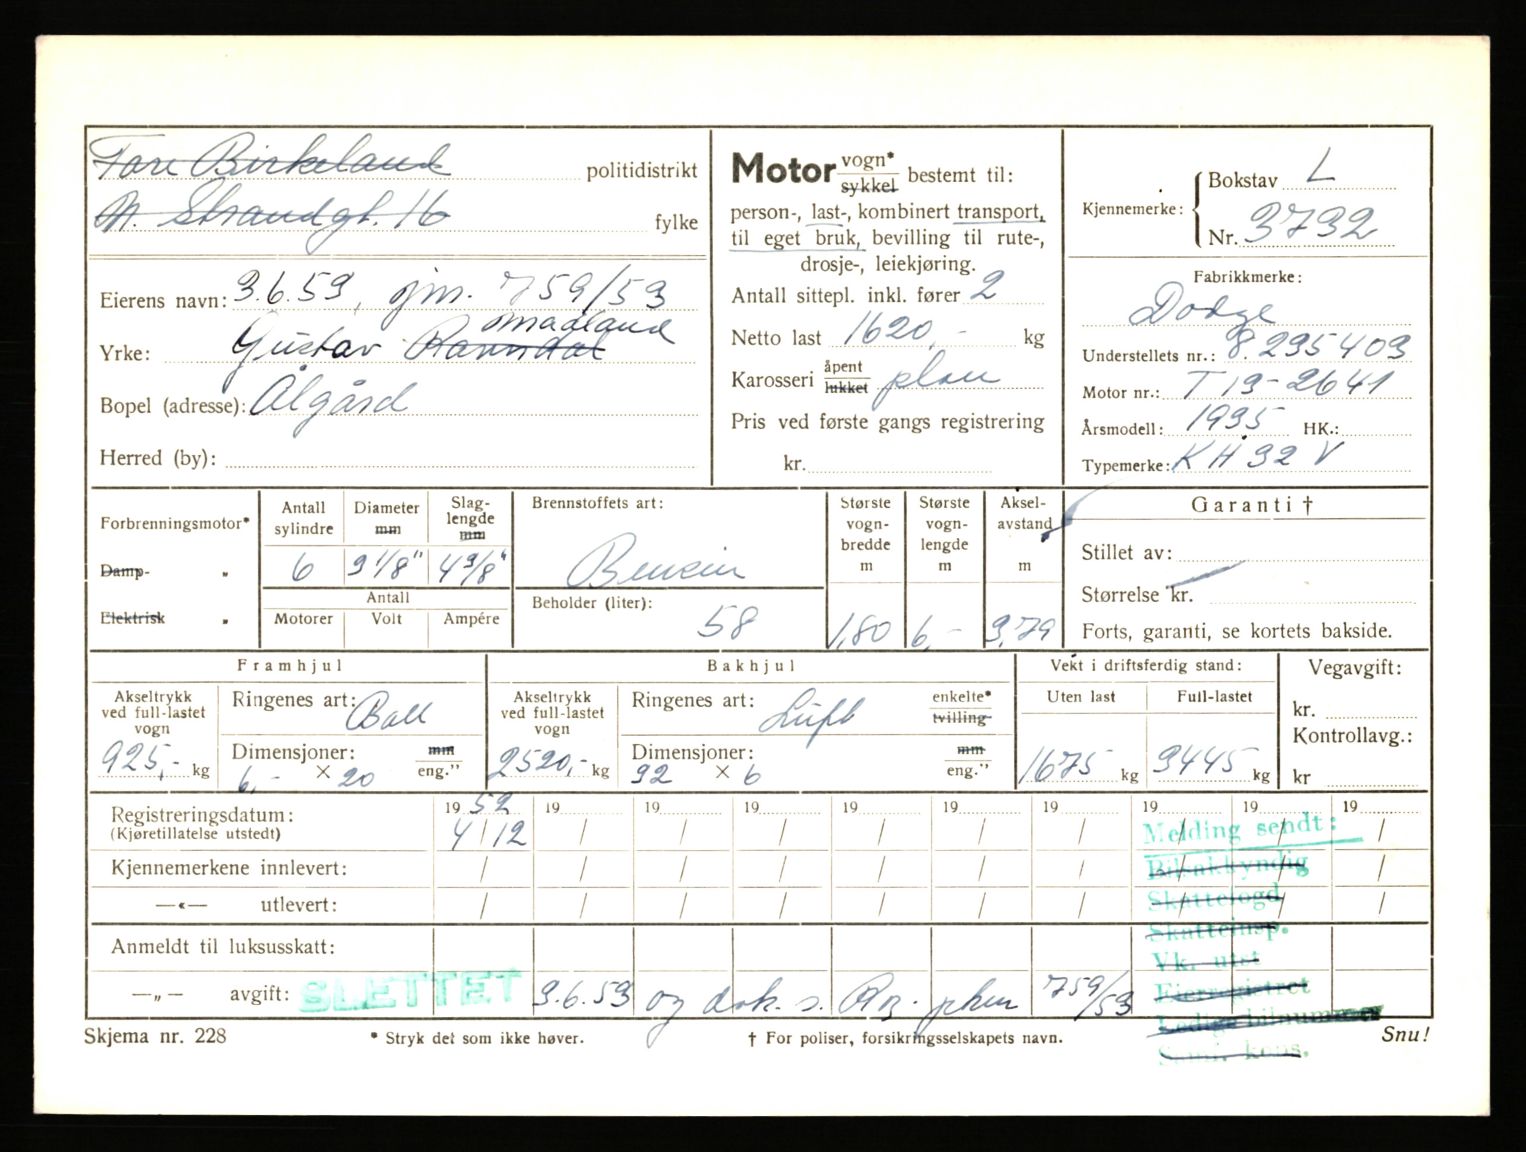 Tore Birkeland politidistrikt
N. Strandgt. 16 fylke
Eierens navn: 3.6.53, jm. 759/53
Madland
Yrke: Gustav Ravndal
Bopel (adresse): Ålgård
Herred (by):
Motor vogn* sykkel bestemt til:
person-, last-, kombinert transport,
til eget bruk, bevilling til rute-,
drosje-, leiekjøring.
Antall sittepl. inkl. fører 2
Netto last 1620,- kg
Karosseri åpent lukket plan
Pris ved første gangs registrering
kr.
Kjennemerke: Bokstav L
Nr. 3732
Fabrikkmerke:
Dodge
Understellets nr.: 8.295409
Motor nr.: T19-2641
Årsmodell: 1935 HK.:
Typemerke: KH 32 V
Forbrenningsmotor*
Damp- "
Elektrisk "
Antall sylindre 6
Diameter mm 3 1/8"
Slaglengde mm 4 3/8"
Antall
Motorer Volt Ampére
Brennstoffets art:
Bensin
Beholder (liter): 58
Største vogn-bredde m 1,80
Største vogn-lengde m 6,-
Aksel-avstand m 3,79
Garanti †
Stillet av:
Størrelse kr.
Forts, garanti, se kortets bakside.
Framhjul
Akseltrykk ved full-lastet vogn 925,- kg
Ringenes art: Ball
Dimensjoner: 6,- × 20 mm eng."
Bakhjul
Akseltrykk ved full-lastet vogn 2520,- kg
Ringenes art: Luft enkelte* tvilling
Dimensjoner: 32 × 6 mm eng."
Vekt i driftsferdig stand:
Uten last 1675 kg
Full-lastet 3445 kg
Vegavgift:
kr.
Kontrollavg.:
kr
Registreringsdatum: 19 52 19 19 19 19 19 19 19 19 19
(Kjøretillatelse utstedt) 4/12 / / / / / / / / /
Kjennemerkene innlevert: / / / / / / / / / /
—«— utlevert: / / / / / / / / / /
Anmeldt til luksusskatt:
—„— avgift: SLETTET 3.6.53 og dok. s. 759/53
Melding sendt:
Bilsakkyndig
Skattefogd
Skatteinsp.
Vk. utst
Eierregistret
Ledige bilnummer
Skjema nr. 228 * Stryk det som ikke høver. † For poliser, forsikringsselskapets navn. Snu!